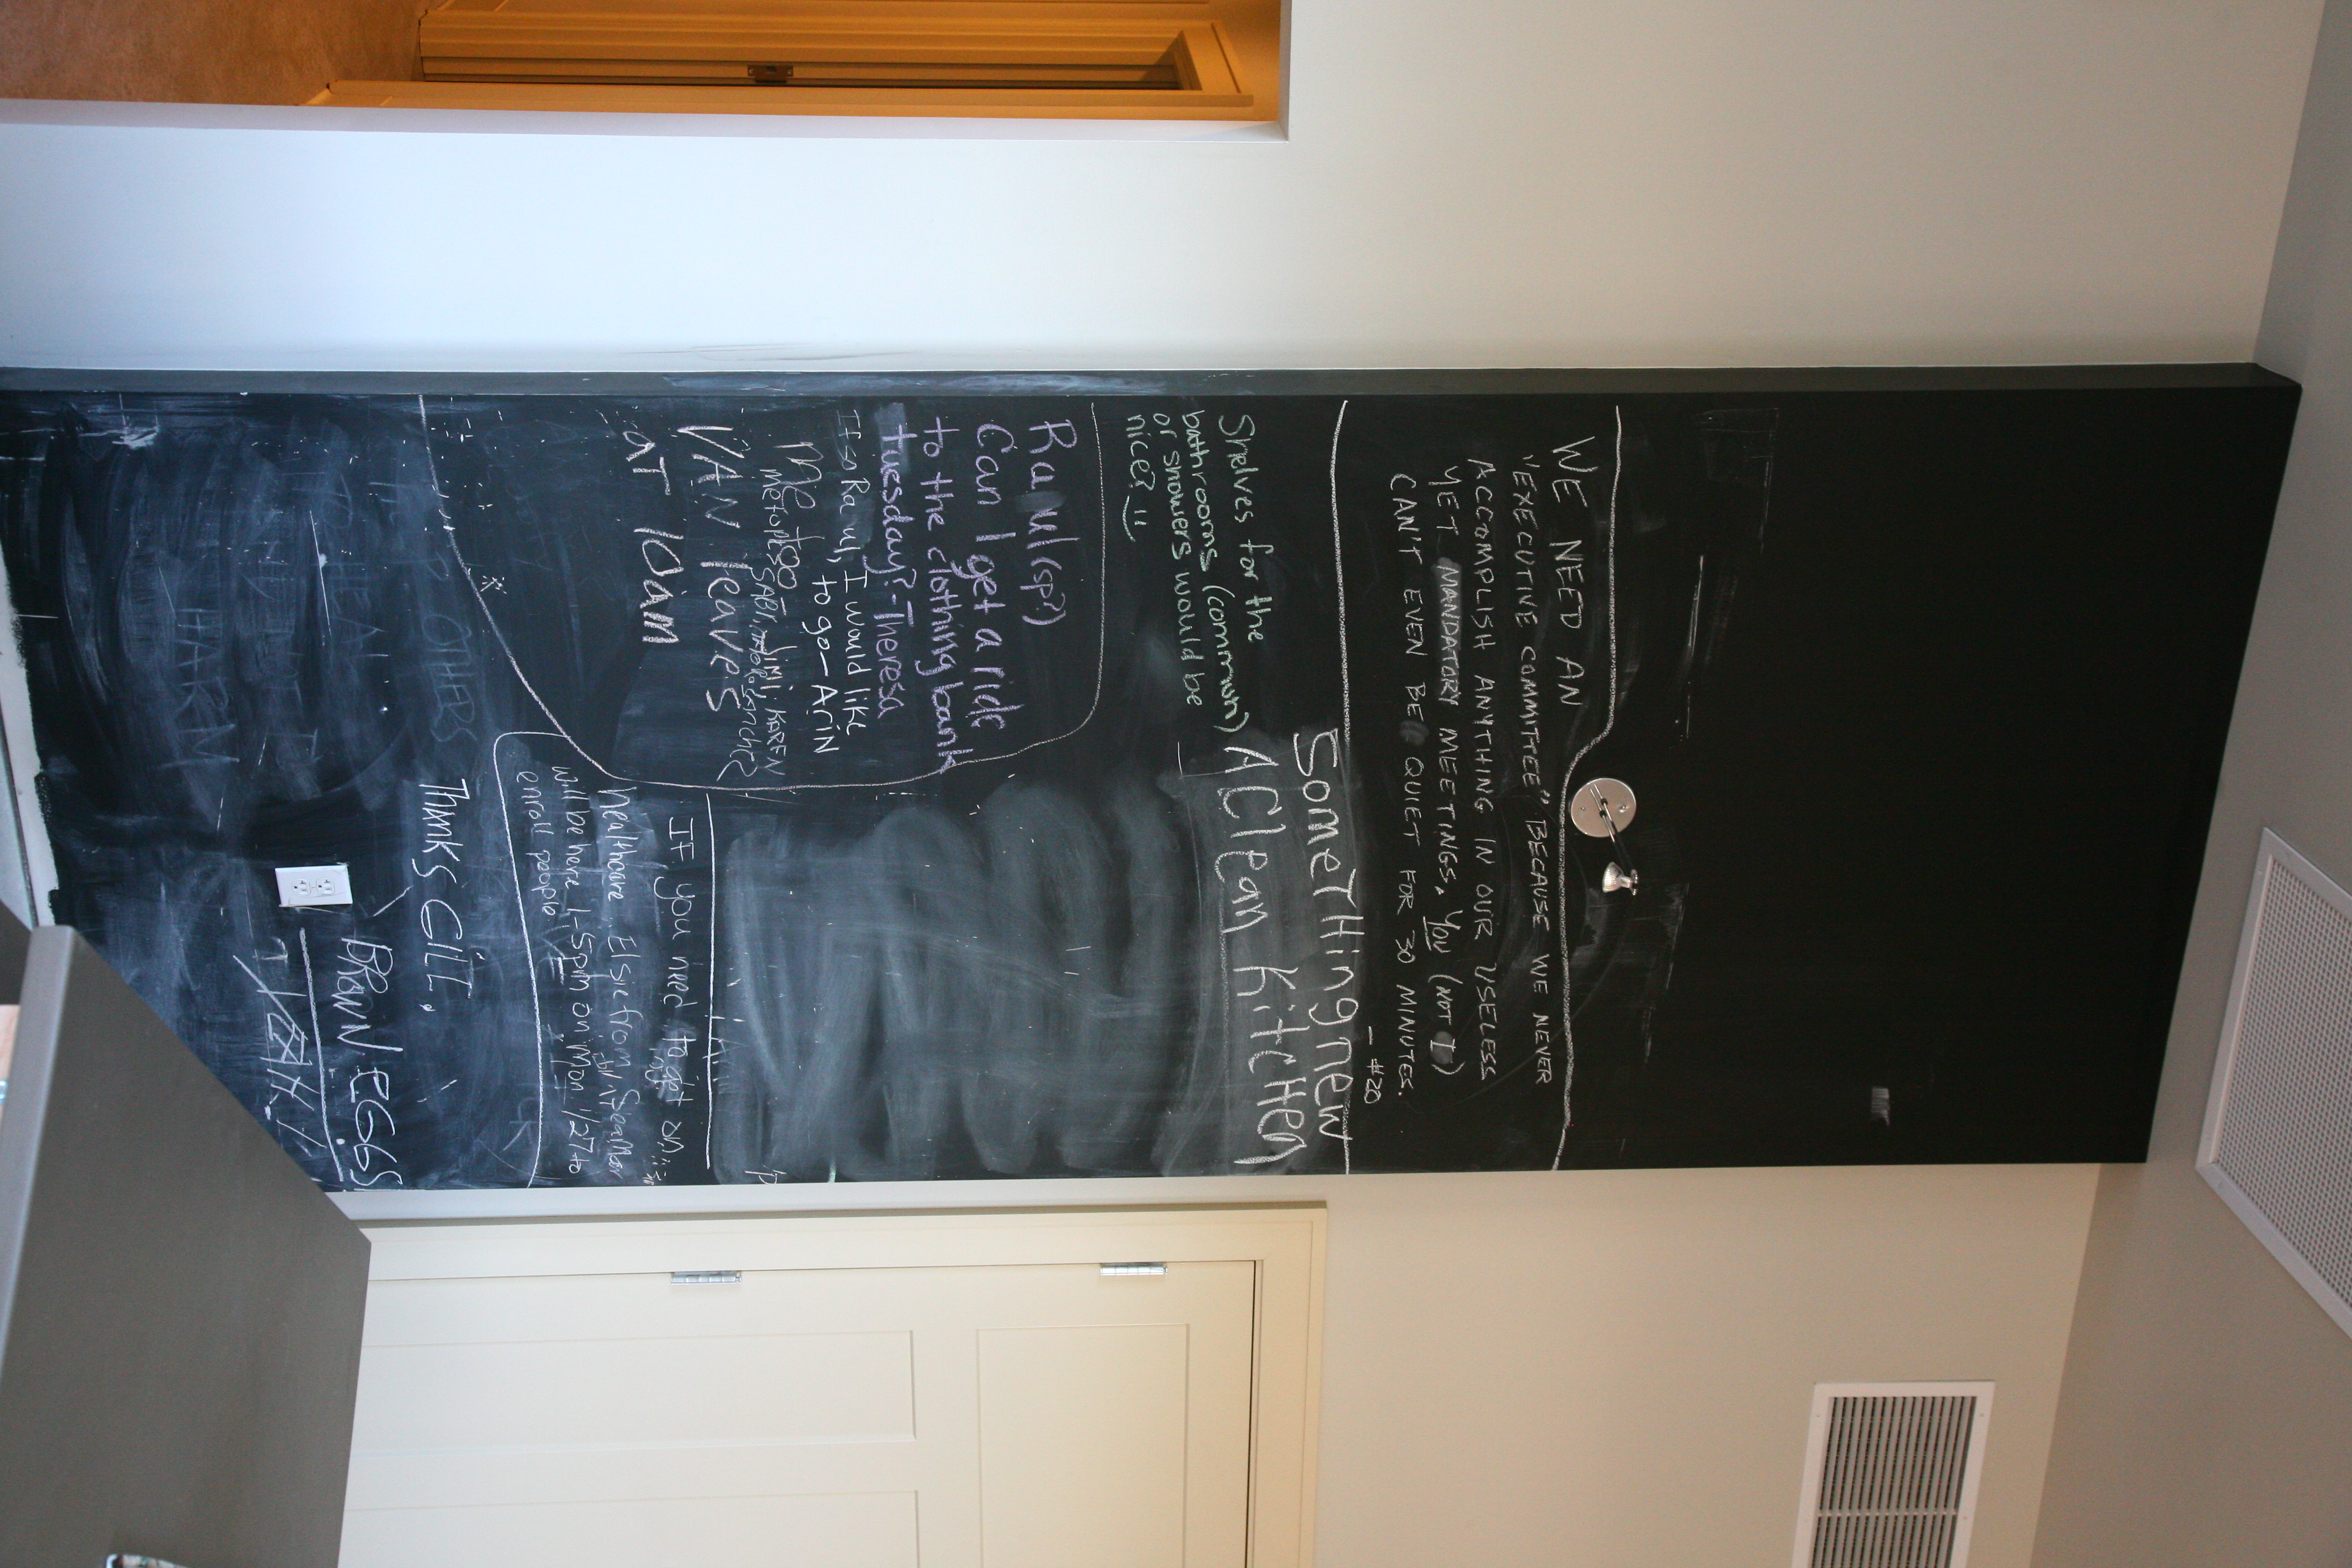 WE NEED AN
"EXECUTIVE COMMITTEE" BECAUSE WE NEVER
ACCOMPLISH ANYTHING IN OUR USELESS
YET MANDATORY MEETINGS. YOU (NOT I)
CAN'T EVEN BE QUIET FOR 30 MINUTES.
- #20
SomeTHing new
A Clean KitcHen
Shelves for the
bathrooms (common)
or showers would be
nice? !!
Raul (sp?)
Can I get a ride
to the clothing bank
tuesday? -Theresa
If so Raul, I would like
to go - Arin
me too - Jimi, KAREN
me to SABI
VAN leaves
AT 10am
If you need to get on
healthcare. Elsie from
will be here 1-5pm on Mon 1/27 to
enroll people
THANKS GILL.
BROWN EGGS
OTHERS
HARM